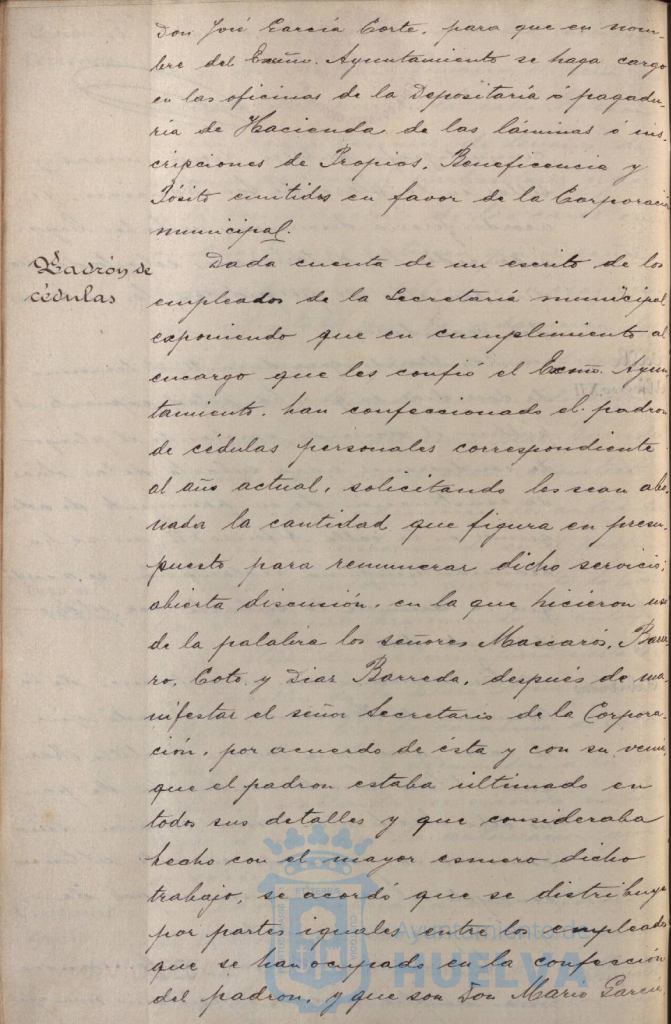 Don José García Corte, para que en nom-
bre del Excmo. Ayuntamiento se haga cargo
en las oficinas de la Depositaría ó pagadu-
ría de Hacienda de las láminas ó ins-
cripciones de Propios, Beneficencia y
Pósito emitidos en favor de la Corporación
municipal.
Padrón de
cédulas
Dada cuenta de un escrito de los
empleados de la Secretaría municipal
exponiendo que en cumplimiento al
encargo que les confió el Excmo. Ayun-
tamiento, han confeccionado el padron
de cédulas personales correspondiente
al año actual, solicitando les sean abo-
nada la cantidad que figura en presu-
puesto para remunerar dicho servicio;
abierta discusión, en la que hicieron uso
de la palabra los señores Mascarós,
ro, Coto y Diaz Barreda, después de ma-
nifestar el señor Secretario de la Corpora-
ción, por acuerdo de ésta y con su venia,
que el padron estaba ultimado en
todos sus detalles y que consideraba
hecho con el mayor esmero dicho
trabajo, se acordó que se distribuya
por partes iguales entre los empleados
que se han ocupado en la confección
del padron, y que son Don Mario García
Ayuntamiento de
HUELVA